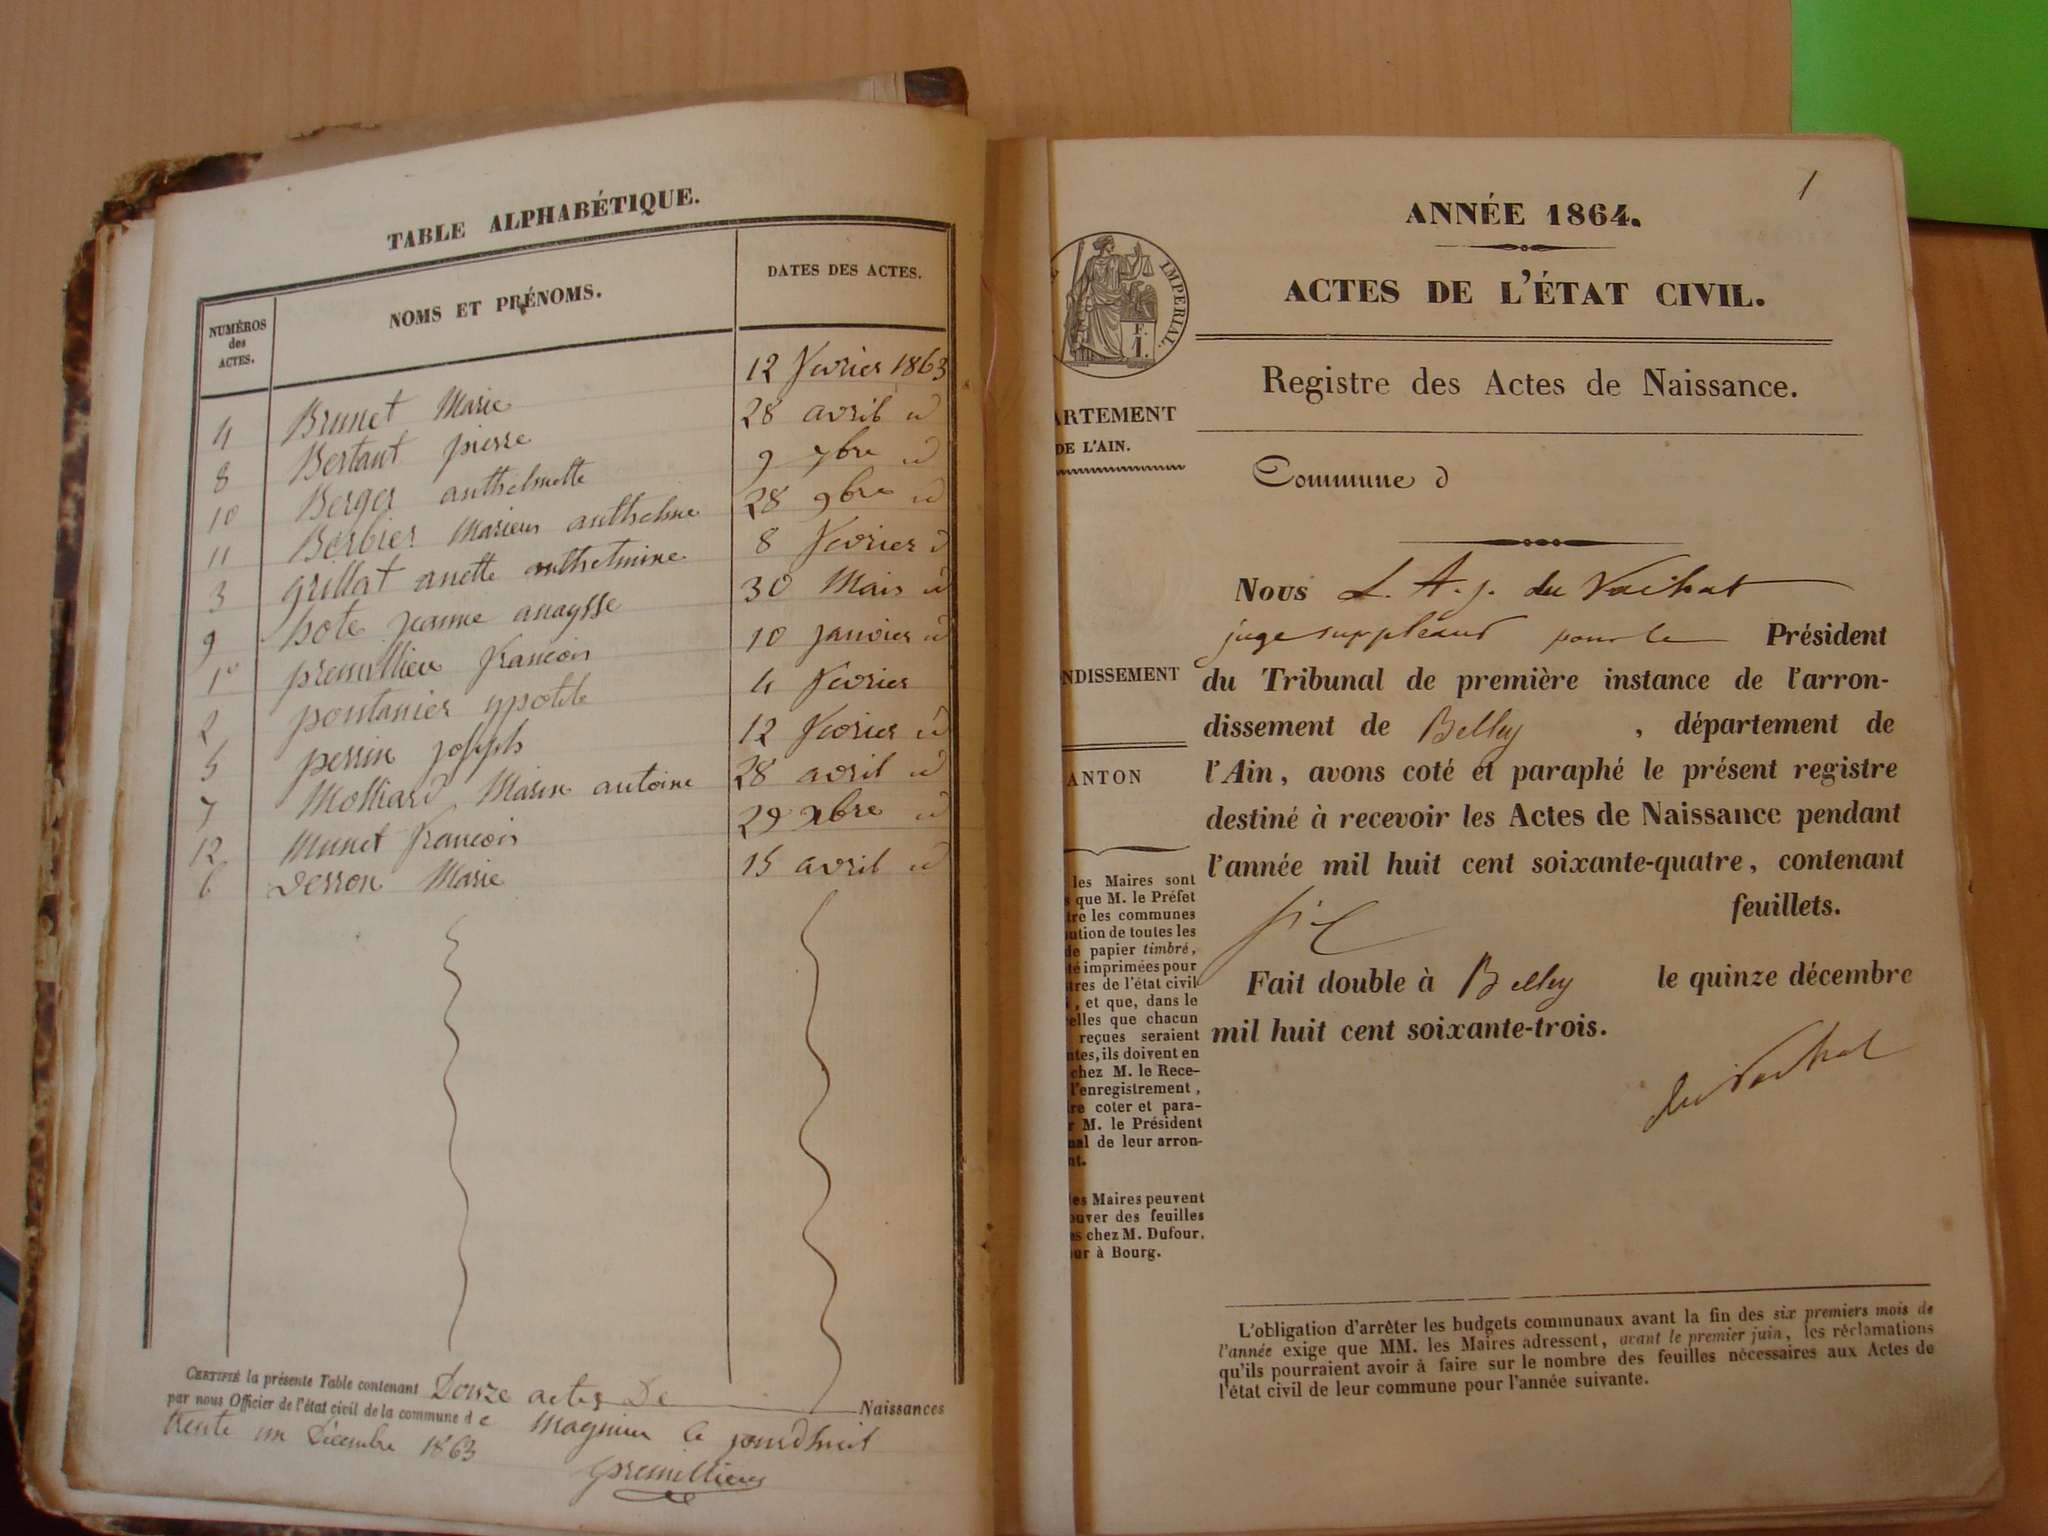 TABLE ALPHABÉTIQUE.
NUMÉROS des ACTES. NOMS ET PRÉNOMS. DATES DES ACTES.
4 Brunet Marie 12 fevrier 1863
8 Bertant pierre 28 avril id
10 Berger anthelmette 9 7bre id
11 Barbier Marieus anthelme 28 9bre id
3 grillat anette anthelmine 8 fevrier id
9 hote jeanne anaysse 30 Mais id
1er premillieu francois 10 janvier id
2 pontanier ypolite 4 fevrier
5 perrin joseph 12 fevrier id
7 Molliard Marin antoine 28 avril id
12 Munet francois 29 xbre id
6 Derron Marie 15 avril id
CERTIFIÉ la présente Table contenant Douze actes De Naissances
par nous Officier de l'état civil de la commune de Magnieu Ce jourdhuit
trente un Décembre 1863
premillieu
1
ANNÉE 1864.
ACTES DE L'ÉTAT CIVIL.
IMPERIAL.
F.
1.
Registre des Actes de Naissance.
ARTEMENT
DE L'AIN.
Commune d
Nous L. A. j. du Vachat
juge suppléant pour le Président
NDISSEMENT
du Tribunal de première instance de l'arron-
dissement de Belley, département de
ANTON
l'Ain, avons coté et paraphé le présent registre
destiné à recevoir les Actes de Naissance pendant
l'année mil huit cent soixante-quatre, contenant
six feuillets.
Fait double à Belley le quinze décembre
mil huit cent soixante-trois.
du Vachat
les Maires sont
que M. le Préfet
tre les communes
ution de toutes les
de papier timbré,
té imprimées pour
tres de l'état civil
, et que, dans le
elles que chacun
reçues seraient
ntes, ils doivent en
chez M. le Rece-
l'enregistrement,
re coter et para-
r M. le Président
nal de leur arron-
nt.
es Maires peuvent
ouver des feuilles
es chez M. Dufour,
ur à Bourg.
L'obligation d'arrêter les budgets communaux avant la fin des six premiers mois de
l'année exige que MM. les Maires adressent, avant le premier juin, les réclamations
qu'ils pourraient avoir à faire sur le nombre des feuilles nécessaires aux Actes de
l'état civil de leur commune pour l'année suivante.